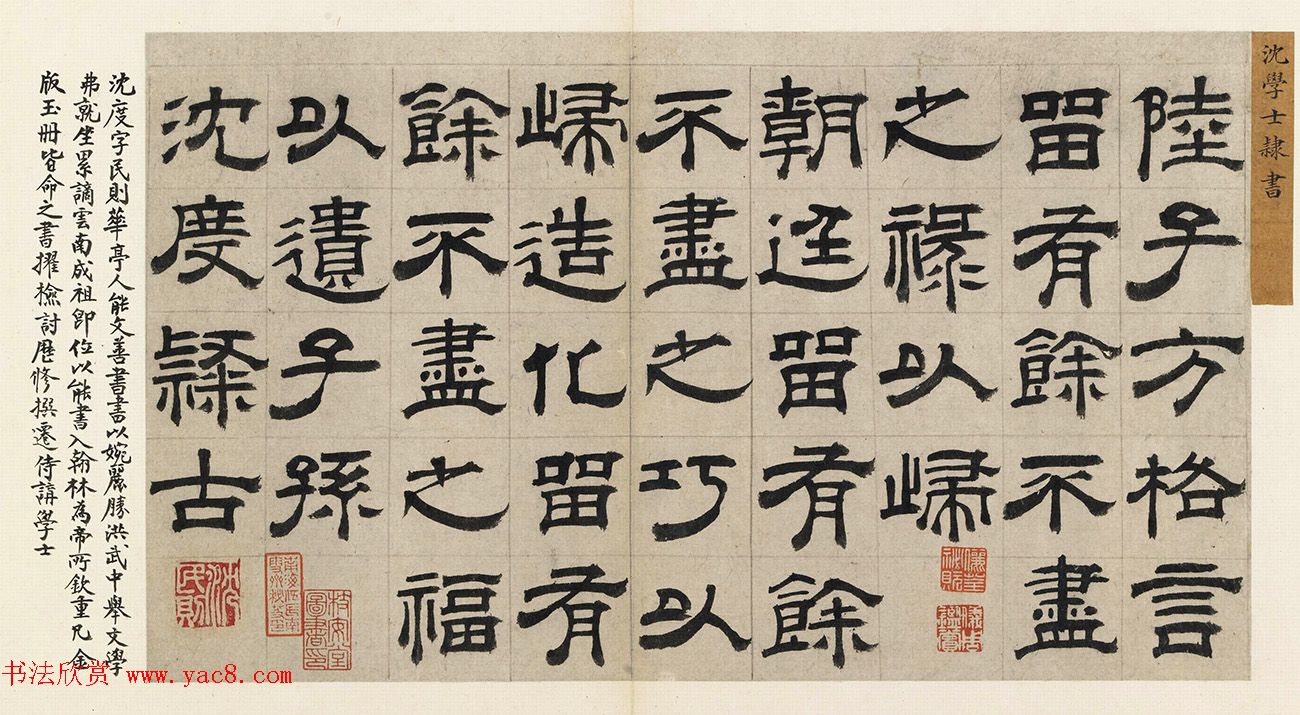 沈學士隸書
陸子方格言
留有餘不盡
之祿以歸
朝廷留有餘
不盡之巧以
歸造化留有
餘不盡之福
以遺子孫
沈度隸古
沈民則
沈度字民則華亭人能文善書書以婉麗勝洪武中舉文學
弗就坐累謫雲南成祖即位以能書入翰林為帝所欽重凡金
版玉冊皆命之書擢檢討歷修撰遷侍講學士
书法欣赏 www.yac8.com